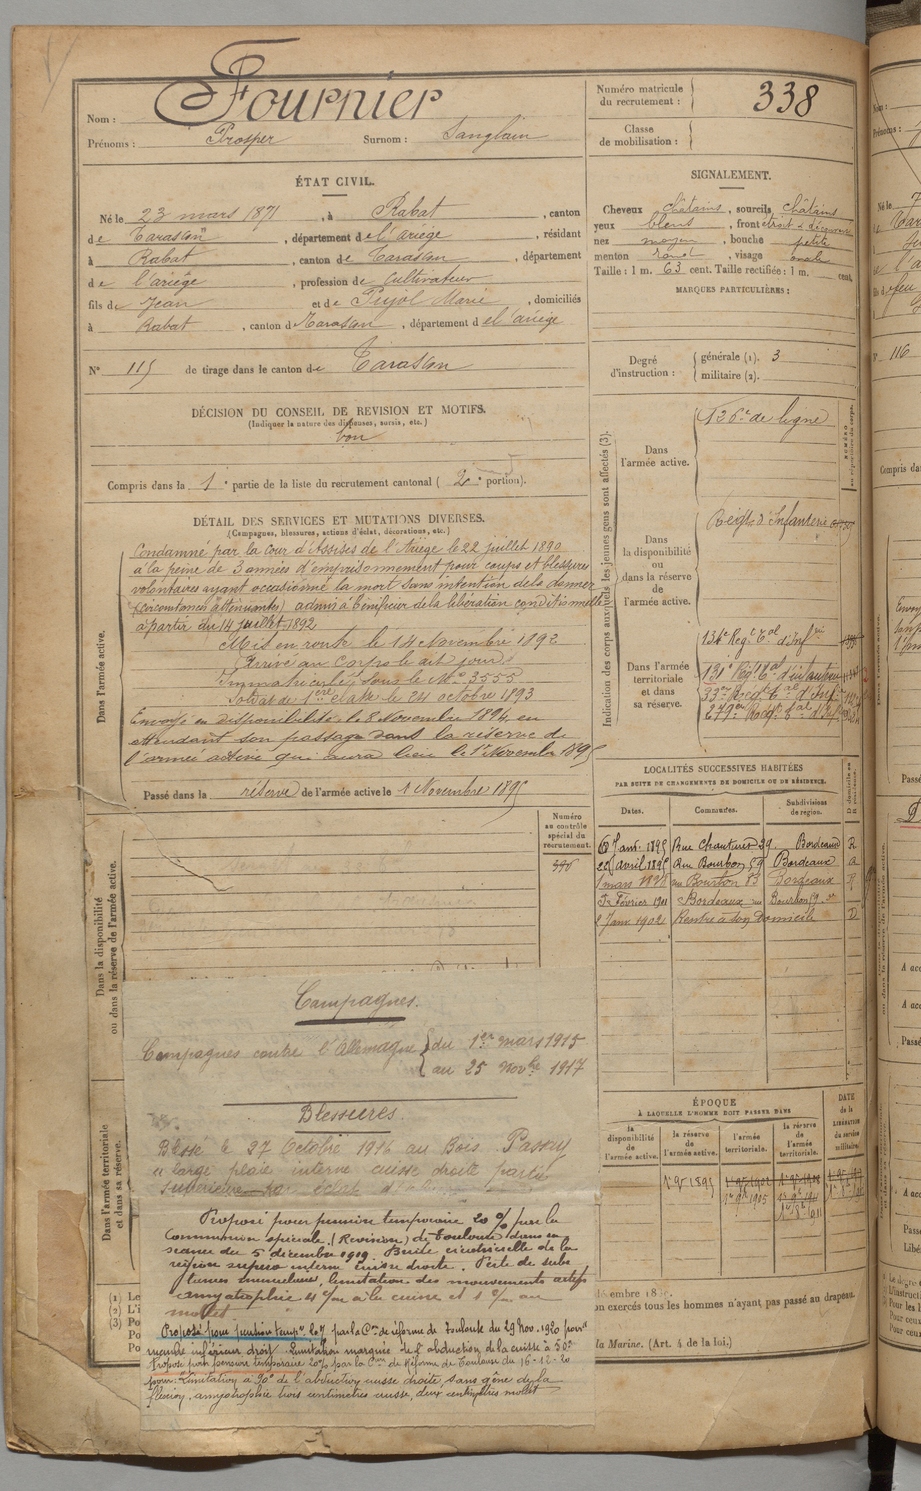 Nom : Fournier
Prénoms : Prosper Surnom : Sanglain
Numéro matricule du recrutement : 338
Classe de mobilisation :
ÉTAT CIVIL.
Né le 23 mars 1871, à Rabat, canton
de Tarascon, département de l'ariège, résidant
à Rabat, canton de Tarascon, département
de l'ariège, profession de cultivateur
fils de Jean et de Pujol Marie, domiciliés
à Rabat, canton de Tarascon, département de l'ariège
N° 115 de tirage dans le canton de Tarascon
SIGNALEMENT.
Cheveux châtains, sourcils châtains
yeux bleus, front étroit & découvert
nez moyen, bouche petite
menton rond, visage ovale
Taille : 1 m. 63 cent. Taille rectifiée : 1 m. cent.
MARQUES PARTICULIÈRES :
Degré d'instruction : générale (1). 3
militaire (2).
DÉCISION DU CONSEIL DE REVISION ET MOTIFS.
(Indiquer la nature des dispenses, sursis, etc.)
bon
Compris dans la 1e partie de la liste du recrutement cantonal ( 2e portion).
DÉTAIL DES SERVICES ET MUTATIONS DIVERSES.
(Campagnes, blessures, actions d'éclat, décorations, etc.)
Dans l'armée active.
Condamné par la Cour d'Assises de l'Ariège le 22 juillet 1890
à la peine de 3 années d'emprisonnement pour coups et blessures
volontaires ayant occasionné la mort sans intention de la donner
(circonstances atténuantes) admis à bénéficier de la libération conditionnelle
à partir du 14 juillet 1892
Mis en route le 14 Novembre 1892
Arrivé au Corps le dit jour
Immatriculé sous le N° 3555
Soldat de 1ère classe le 24 octobre 1893
Envoyé en disponibilité le 8 Novembre 1894 en
attendant son passage dans la réserve de
l'armée active qui aura lieu le 1er Novembre 1895
Passé dans la réserve de l'armée active le 1 Novembre 1895
Indication des corps auxquels les jeunes gens sont affectés (3).
Dans l'armée active.
126e de ligne
NUMÉRO
Dans la disponibilité ou dans la réserve de l'armée active.
Regt d'Infanterie
Dans l'armée territoriale et dans sa réserve.
134e Regt Tal d'Infrie
131e Regt Tal d'infanterie
33me Regt Tal d'Inf.
279e Regt Tal d'Inf.
LOCALITÉS SUCCESSIVES HABITÉES
PAR SUITE DE CHANGEMENTS DE DOMICILE OU DE RÉSIDENCE.
Dates. Communes. Subdivisions de région.
Janv. 1895 Rue 39. Bordeaux R
avril 1895 Rue Bourbon 59 Bordeaux
1 mars rue Bourbon 83 Bordeaux R
Février 1901 Bordeaux rue Bourbon
Janv. 1902 Rentré à son Domicile D
Numéro au contrôle spécial du recrutement.
Dans la disponibilité ou dans la réserve de l'armée active.
Campagnes.
Campagnes contre l'Allemagne du 1er mars 1915
au 25 Novbre 1917
Blessures
Blessé le 27 Octobre 1916 au Bois Passy
large plaie interne cuisse droite partie
supérieure par éclat d'obus
Dans l'armée territoriale et dans sa réserve.
Proposé pour pension temporaire 20 % par la
Commission spéciale (Revision) de Toulouse dans sa
séance du 5 décembre 1919. Bride cicatricielle de la
région supero interne cuisse droite. Perte de subs
tances musculaires, limitation des mouvements actifs
amyotrophie 4 c/m à la cuisse et 1 c/m au
mollet
Proposé pour pension tempre par la Con de réforme de Toulouse du 29 Nov. 1920 pour
membre inférieur droit. Limitation marquée de l'abduction de la cuisse à 30°
Proposé pour pension temporaire 20% par la Con de Réforme de Toulouse du 16-12-20
pour : Limitation à 30° de l'abduction cuisse droite, sans gêne de la
flexion, amyotrophie trois centimètres cuisse, deux centimètres mollet
ÉPOQUE
À LAQUELLE L'HOMME DOIT PASSER DANS
la disponibilité de l'armée active.
la réserve de l'armée active.
l'armée territoriale.
la réserve de l'armée territoriale.
DATE de la LIBÉRATION du service militaire.
1er 9bre 1895
exercés tous les hommes n'ayant pas passé au drapeau.
la Marine. (Art. 4 de la loi.)
N° 116